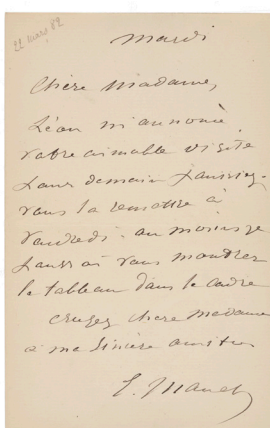 21 mars 82
mardi
Chère Madame,
Léon m'annonce
votre aimable visite
pour demain pourriez-
vous la remettre à
vendredi. au moins je
pourrai vous montrer
le tableau dans le cadre
croyez chère Madame
à ma sincère amitié
E. Manet